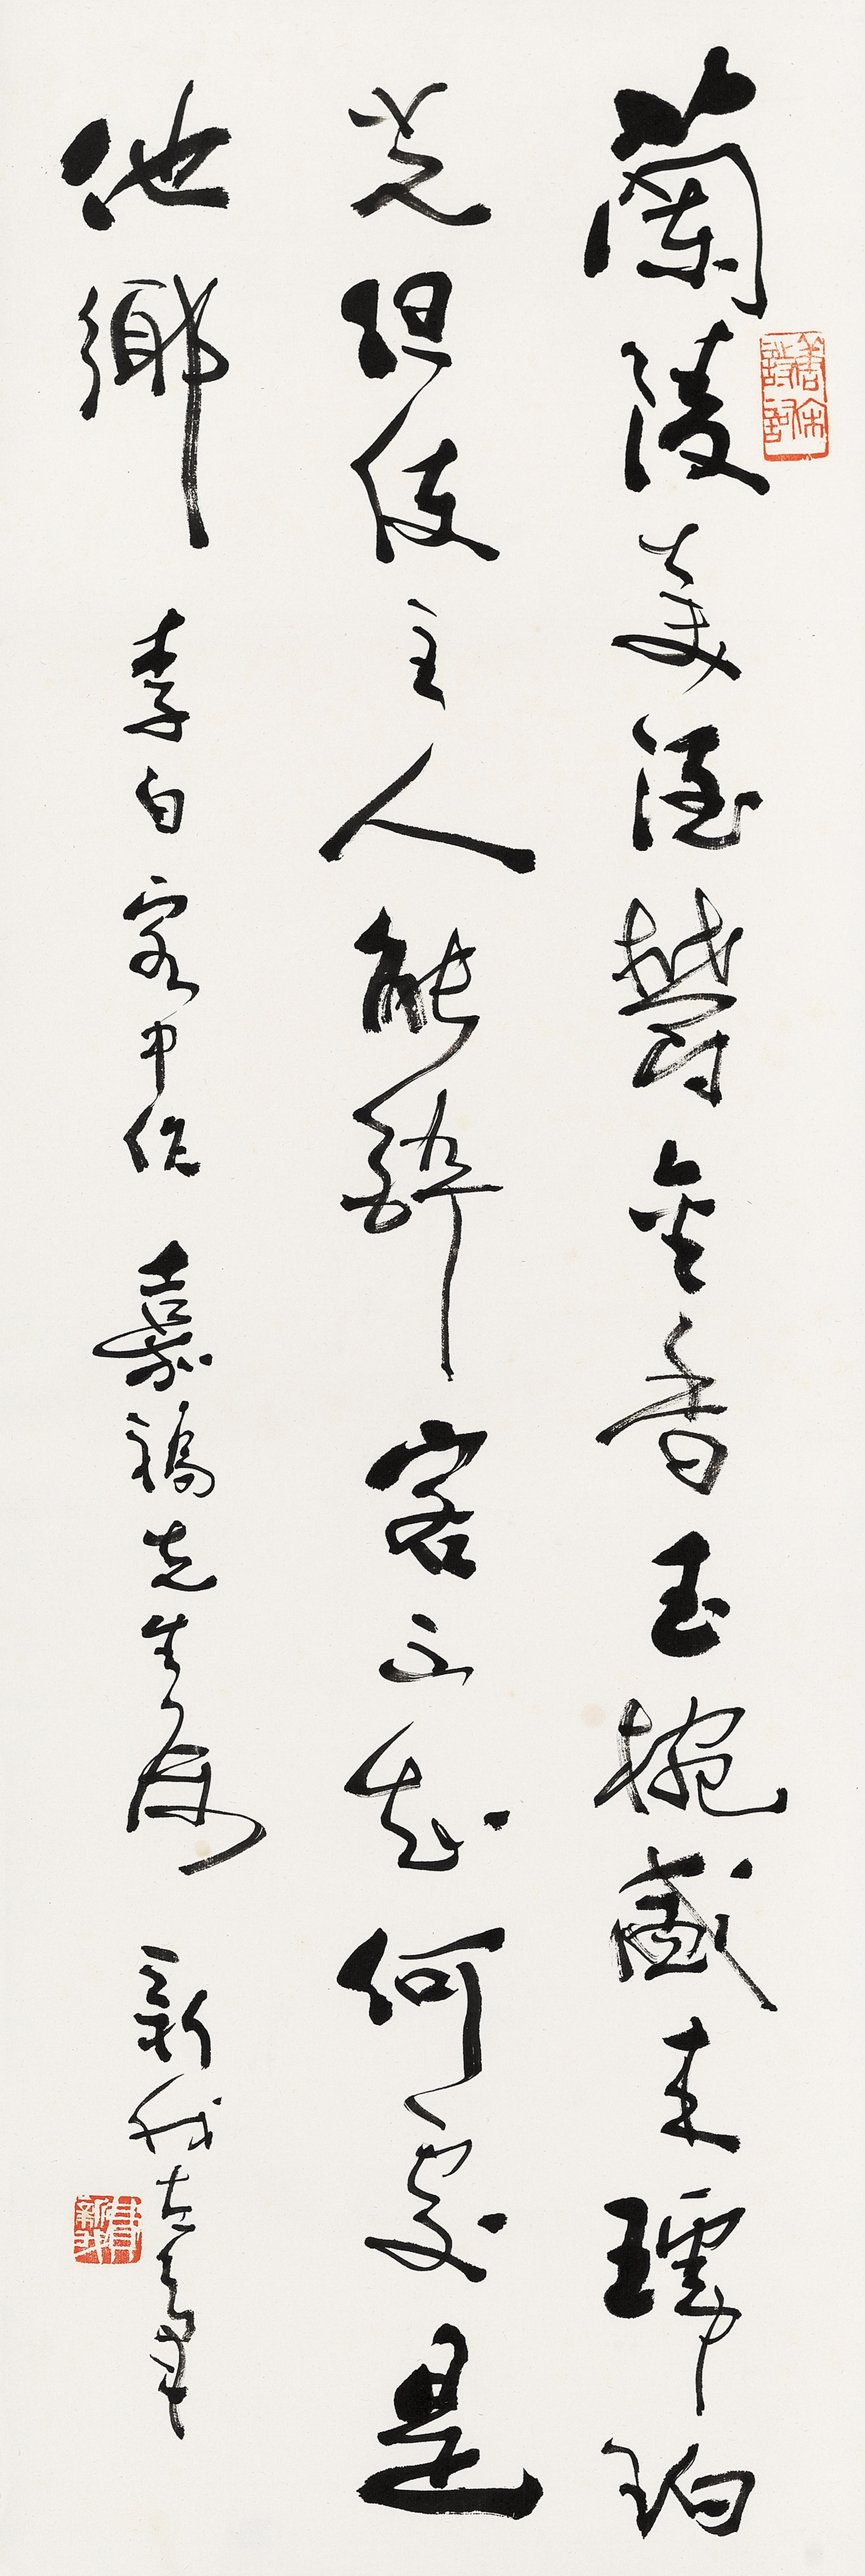 蘭陵美酒鬱金香玉椀盛來琥珀
光但使主人能醉客不知何處是
他鄉 李白客中作 嘉 先生 新我左筆
唐宋詩詞
費新我